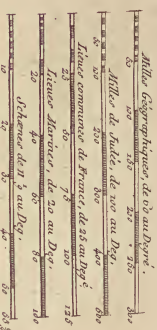 Milles Géographiques, de 60 au Degré.
50 100 150 200 250 300
Milles de Judée, de 100 au Deg.
50 100 200 300 400 500
Lieues communes de France, de 25 au Degré.
25 50 75 100 125
Lieues Marines, de 20 au Deg.
20 40 60 80 100
Schœnes de 11 1/9 au Deg.
10 20 30 40 50 55